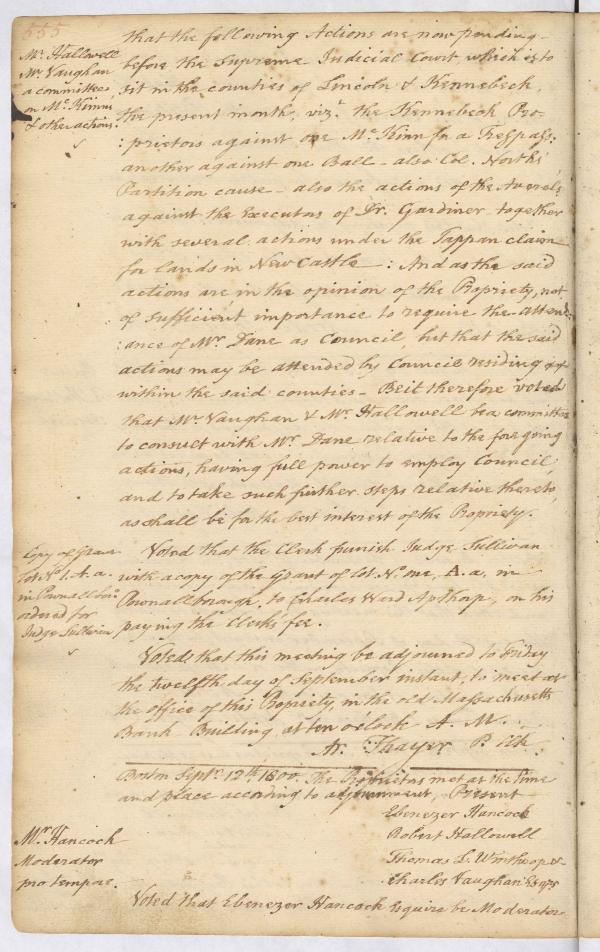 555
Mr. Hallowell
Mr. Vaughan
a committee
on McKinns
& other actions.
that the following Actions are now pending
before the Supreme Judicial Court which is to
sit in the counties of Lincoln & Kennebeck,
the present month, vizt. the Kennebeck Pro-
:prietors against one McKinn in a Trespass:
another against one Ball - also Col. Norths
Partition cause - also the actions of the Averels
against the Executors of Dr. Gardiner together
with several actions under the Tappan claim
for lands in New Castle : And as the said
actions are in the opinion of the Propriety, not
of sufficient importance to require the attend-
:ance of Mr. Dane as Council, but that the said
actions may be attended by Council residing
within the said counties - Be it therefore voted
that Mr. Vaughan & Mr. Hallowell be a committee
to consult with Mr. Dane relative to the foregoing
actions, having full power to employ Council,
and to take such further steps relative thereto,
as shall be for the best interest of the Propriety.
Copy of Grant
lot No. 1. A. a.
in Pownallboro'
ordered for
Judge Sullivan
Voted that the Clerk furnish Judge Sullivan
with a copy of the Grant of lot No. one, A. a. in
Pownallborough, to Charles Ward Apthorp, on his
paying the Clerks fee.
Voted that this meeting be adjourned to Friday
the twelfth day of September instant, to meet at
the office of this Propriety, in the old Massachusetts
Bank Building at ten oclock A. M.
Ar. Thayer P. Clk
Boston Septr. 12th. 1800. The Proprietors met at the time
and place according to adjournment, Present
Ebenezer Hancock
Robert Hallowell
Thomas L. Winthrop &
Charles Vaughan Esqrs
Mr. Hancock
Moderator
pro tempore.
Voted that Ebenezer Hancock Esquire be Moderator